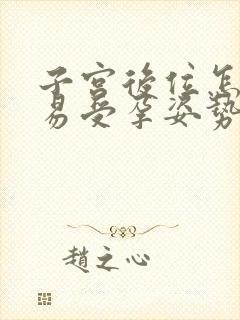 子宮後位怎
易受孕姿勢
趙之心